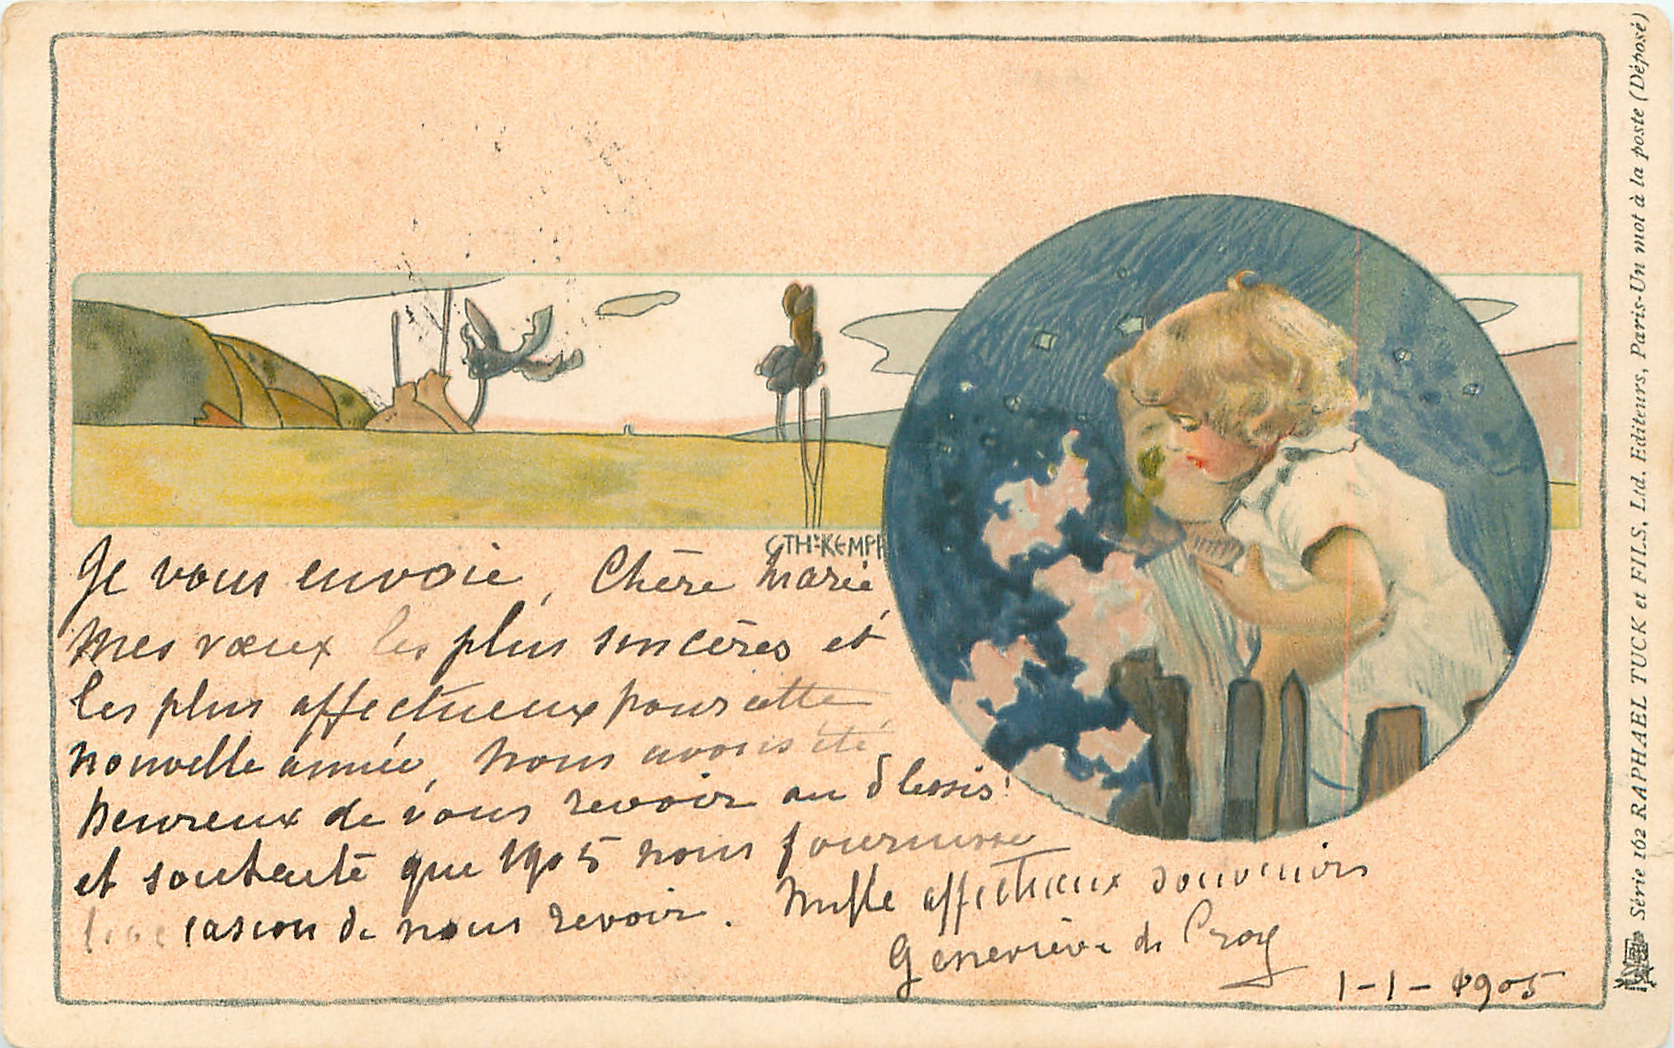 GTH·KEMPF
Je vous envoie, Chère Marie
mes vœux les plus sincères et
les plus affectueux pour cette
nouvelle année, nous avons été
heureux de vous revoir au Plessis!
et souhaite que 1905 nous fournisse
l'occasion de nous revoir. Mille affectueux souvenirs
Geneviève de Croy
1-1-1905
Série 162 RAPHAEL TUCK et FILS, Ltd. Editeurs, Paris-Un mot à la poste (Déposé)